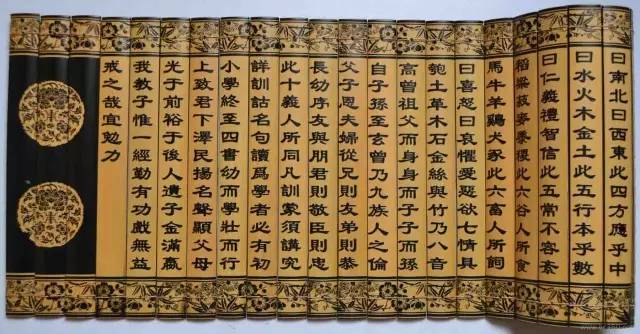 曰南北曰西東此四方應乎中
曰水火木金土此五行本乎數
曰仁義禮智信此五常不容紊
稻粱菽麥黍稷此六谷人所食
馬牛羊鷄犬豕此六畜人所飼
曰喜怒曰哀懼愛惡欲七情具
匏土革木石金絲與竹乃八音
高曾祖父而身身而子子而孫
自子孫至玄曾乃九族人之倫
父子恩夫婦從兄則友弟則恭
長幼序友與朋君則敬臣則忠
此十義人所同凡訓蒙須講究
詳訓詁名句讀爲學者必有初
小學終至四書幼而學壯而行
上致君下澤民揚名聲顯父母
光于前裕于後人遺子金滿嬴
我教子惟一經勤有功戲無益
戒之哉宜勉力